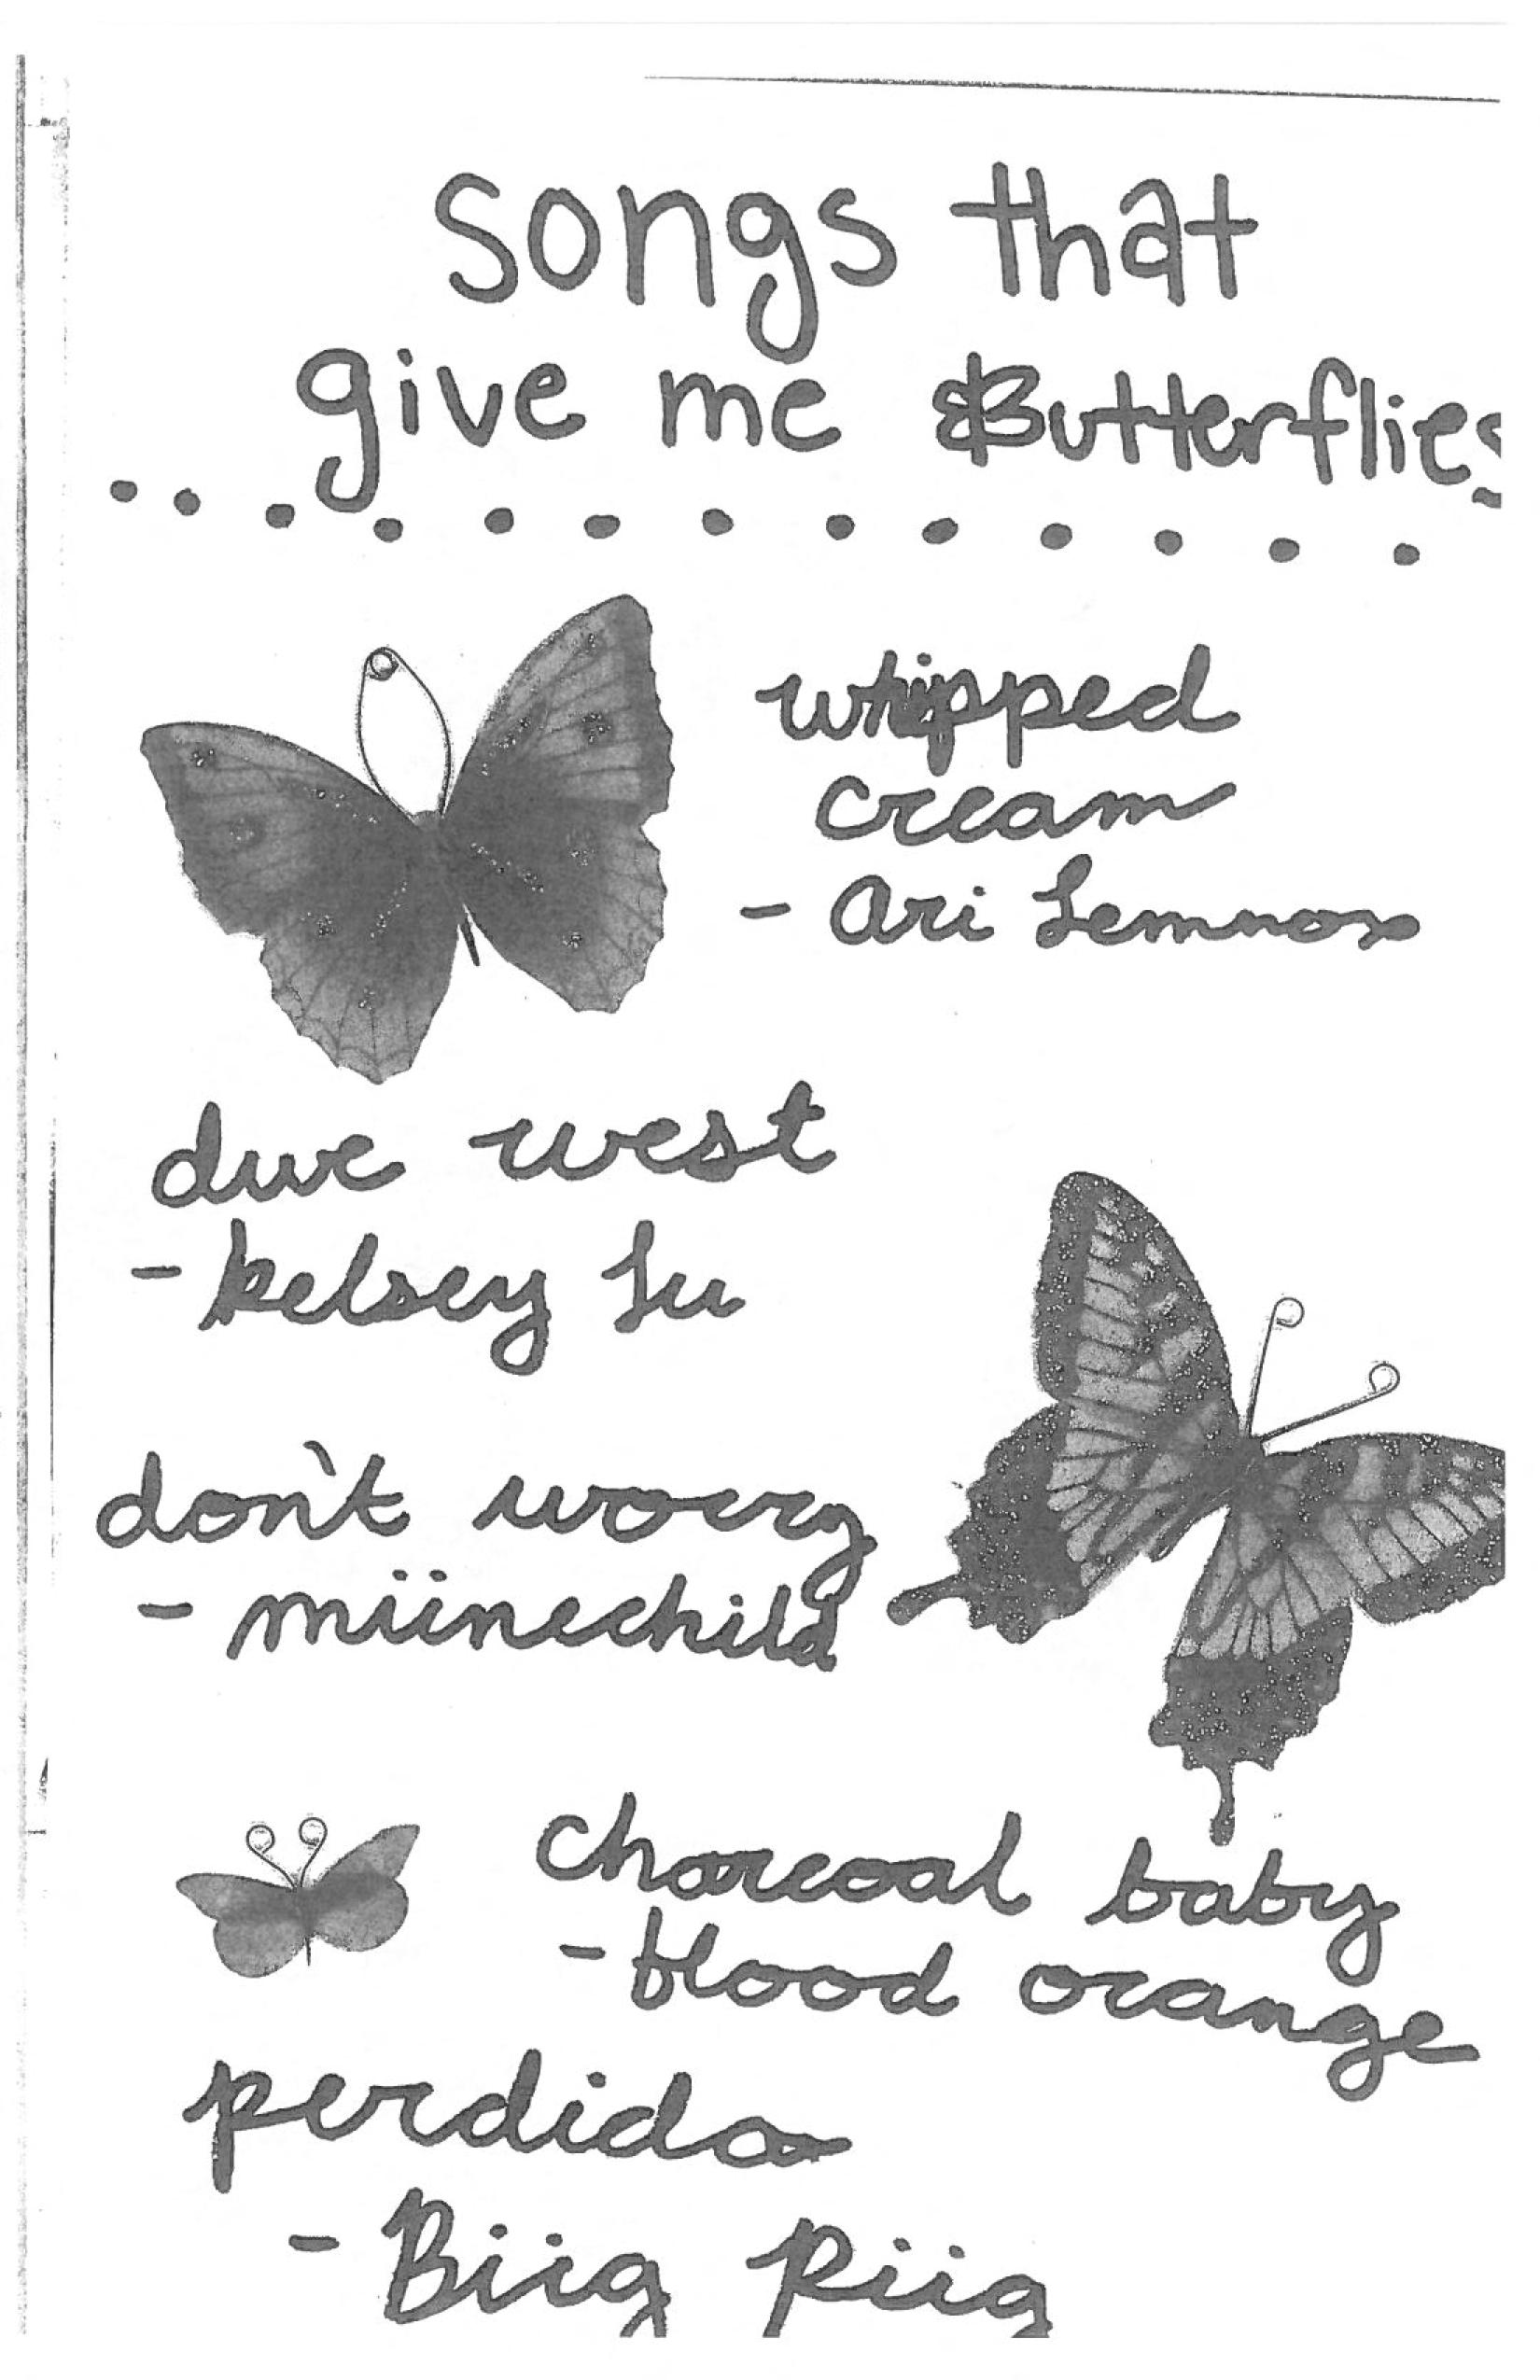 songs that
give me Butterflies
whipped
cream
- Ari Lennox
due west
- kelsey Lu
don't worry
- miinechild
charcoal baby
- blood orange
perdido
- Biig Piig